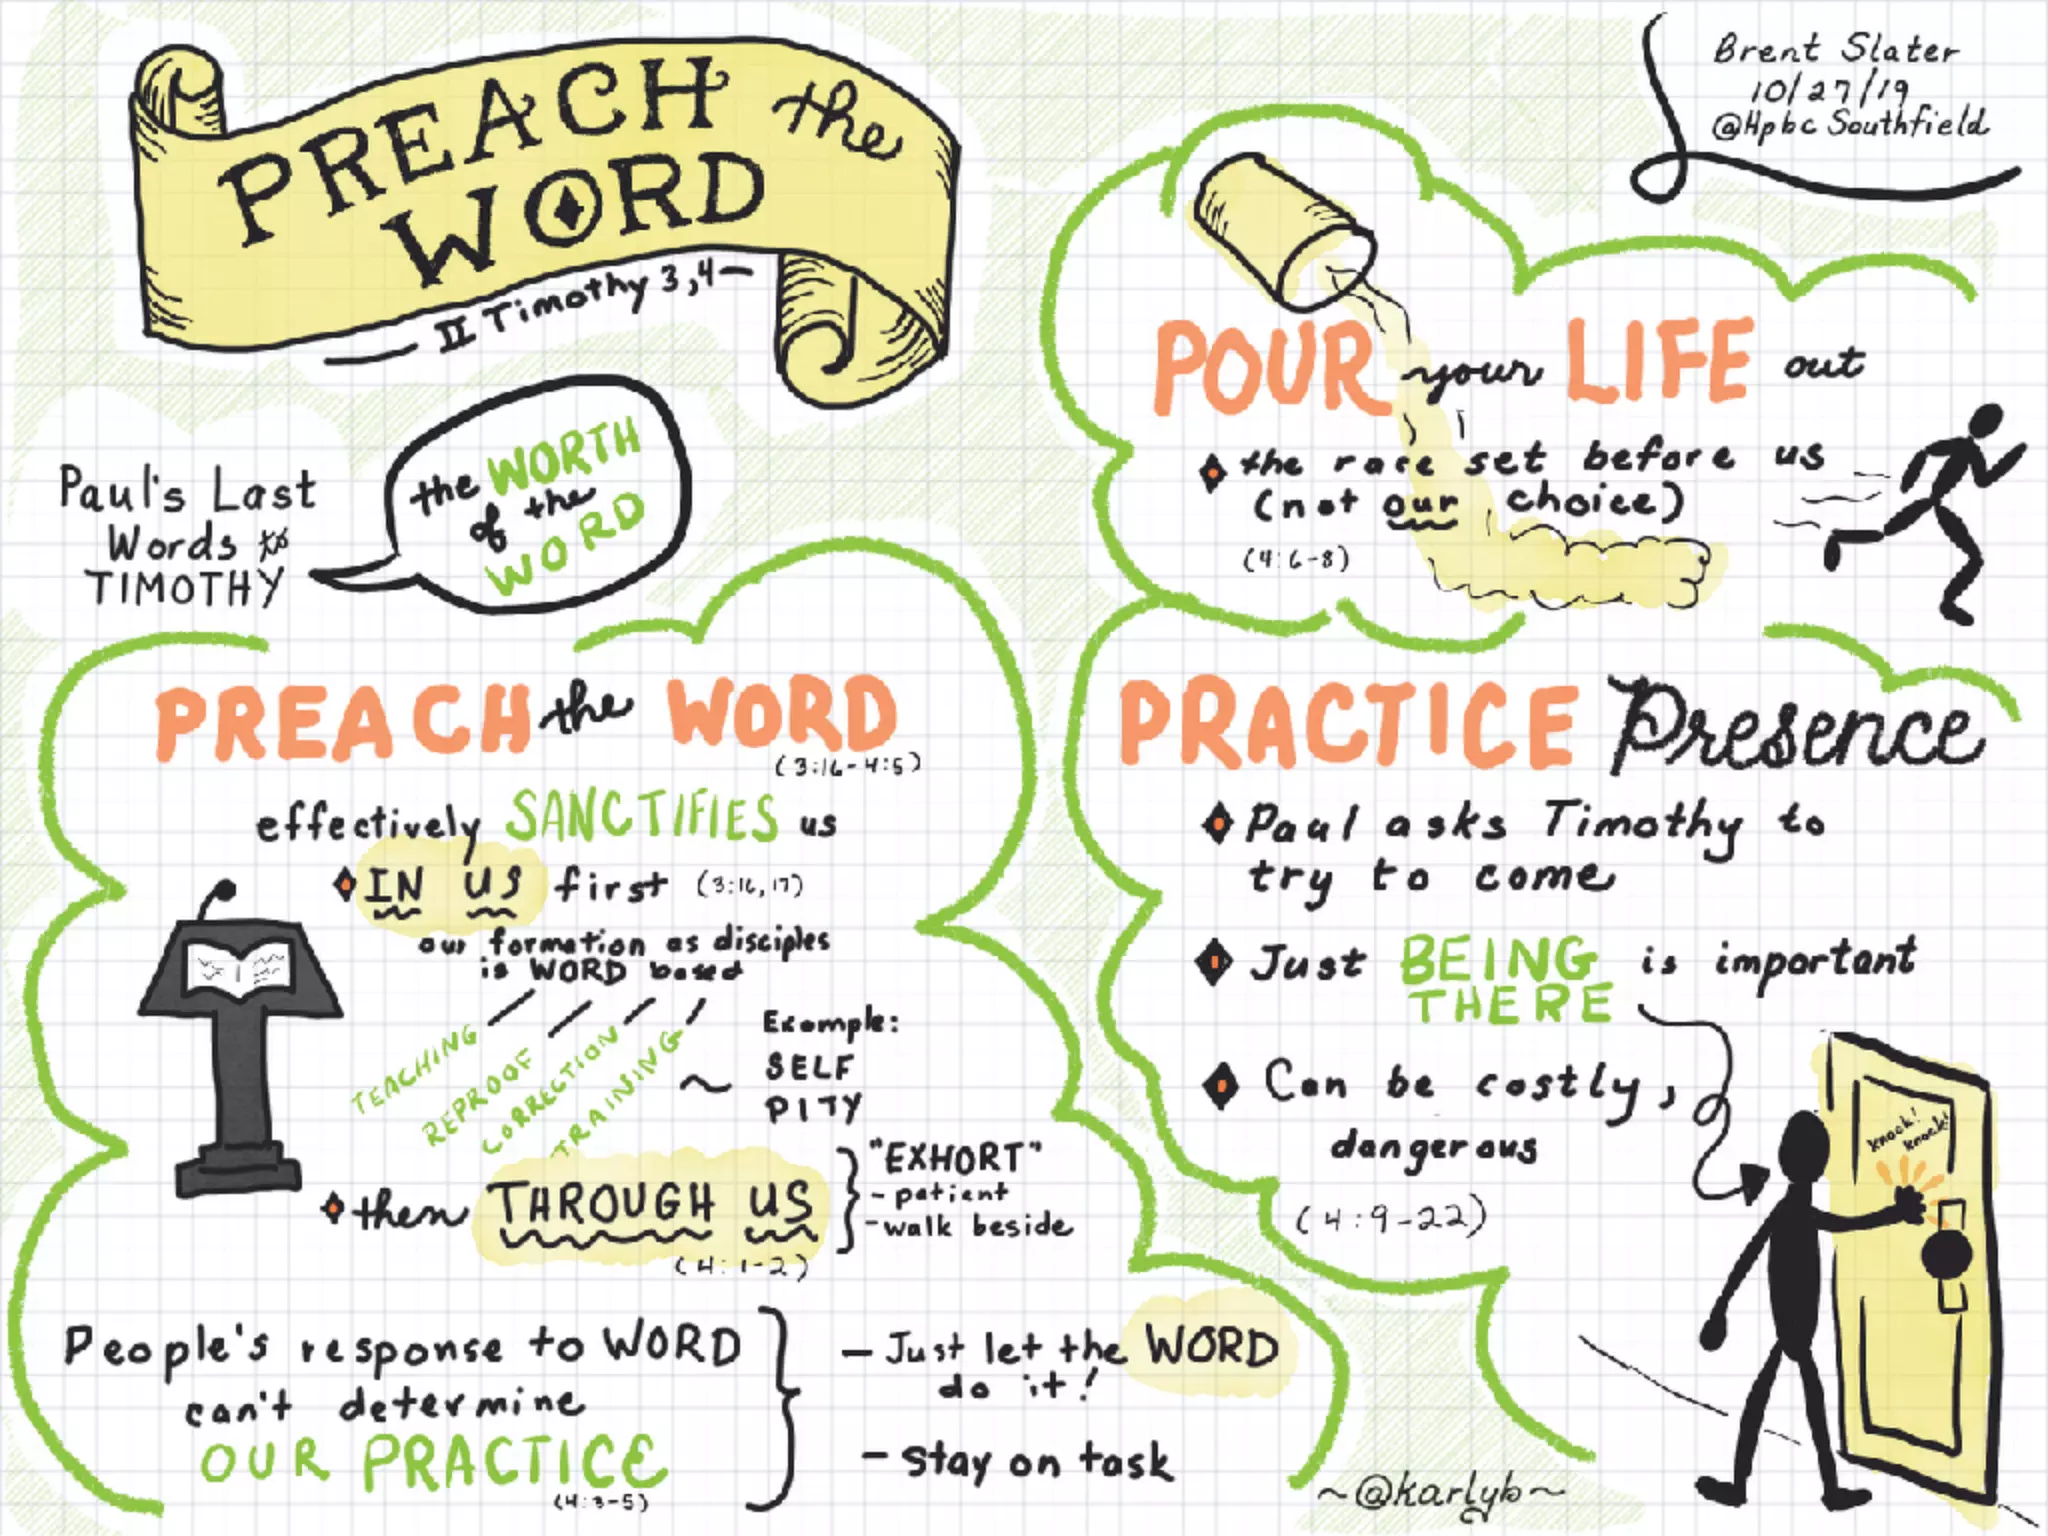 PREACH the
WORD
II Timothy 3,4
Brent Slater
10/27/19
@Hpbc Southfield
Paul's Last
Words to
TIMOTHY
the WORTH
of the
WORD
PREACH the WORD
(3:16-4:5)
effectively SANCTIFIES us
IN US first (3:16,17)
our formation as disciples
is WORD based
TEACHING
REPROOF
CORRECTION
TRAINING
Example:
SELF
PITY
then THROUGH US
(4:1-2)
"EXHORT"
- patient
- walk beside
People's response to WORD
can't determine
OUR PRACTICE
(4:3-5)
- Just let the WORD
do it!
- Stay on task
POUR your LIFE out
the race set before us
(not our choice)
(4:6-8)
PRACTICE Presence
Paul asks Timothy to
try to come
Just BEING is important
THERE
Can be costly,
dangerous
(4:9-22)
knock!
knock!
~@karlyb~